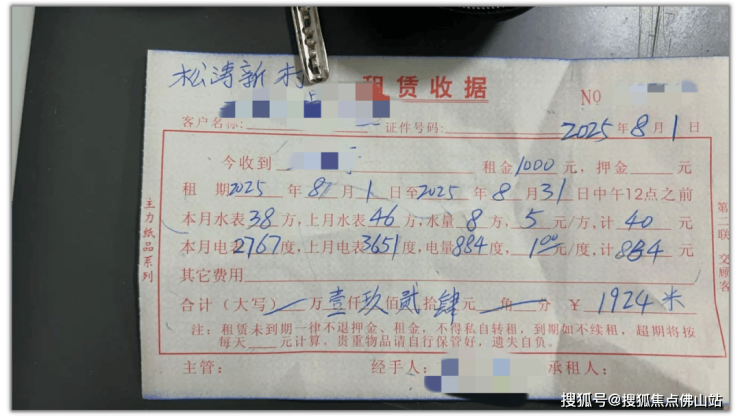 松涛新村
租赁收据
NO
客户名称: 证件号码: 2025年8月1日
今收到 租金1000元，押金 元
租 期2025年8月1日至2025年8月31日中午12点之前
本月水表38方，上月水表46方，水量8方，5元/方，计40元
本月电表2767度，上月电表3651度，电量884度，1.00元/度，计884元
其它费用
合计（大写）一万壹仟玖佰贰拾肆元一角一分 ¥1924米
注：租赁未到期一律不退押金、租金，不得私自转租，到期如不续租，超期将按
每天 元计算。贵重物品请自行保管好，遗失自负。
主管: 经手人: 承租人:
主力纸品系列
第二联 交顾客
搜狐号@搜狐焦点佛山站